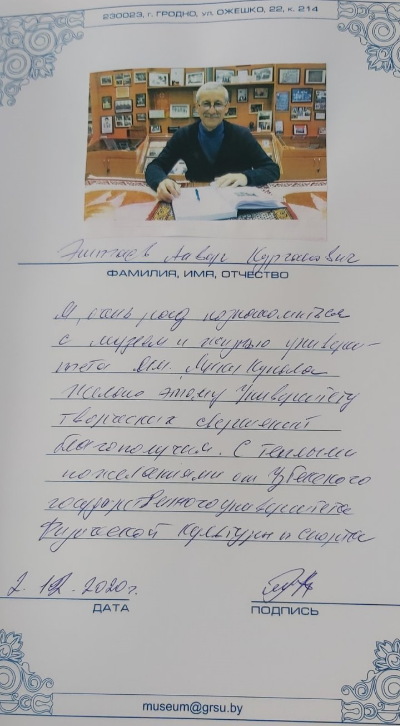 230023, г. ГРОДНО, ул. ОЖЕШКО, 22, к. 214
Эштаев Анвар
ФАМИЛИЯ, ИМЯ, ОТЧЕСТВО
Я, очень рад познакомиться
с музеем и универси-
тета им. Янки Купалы
Желаю этому Университету
творческих свершений
благополучия. С теплыми
пожеланиями от Узбекского
государственного университета
Физической Культуры и спорта
2. 12. 2020г.
ДАТА
ПОДПИСЬ
museum@grsu.by